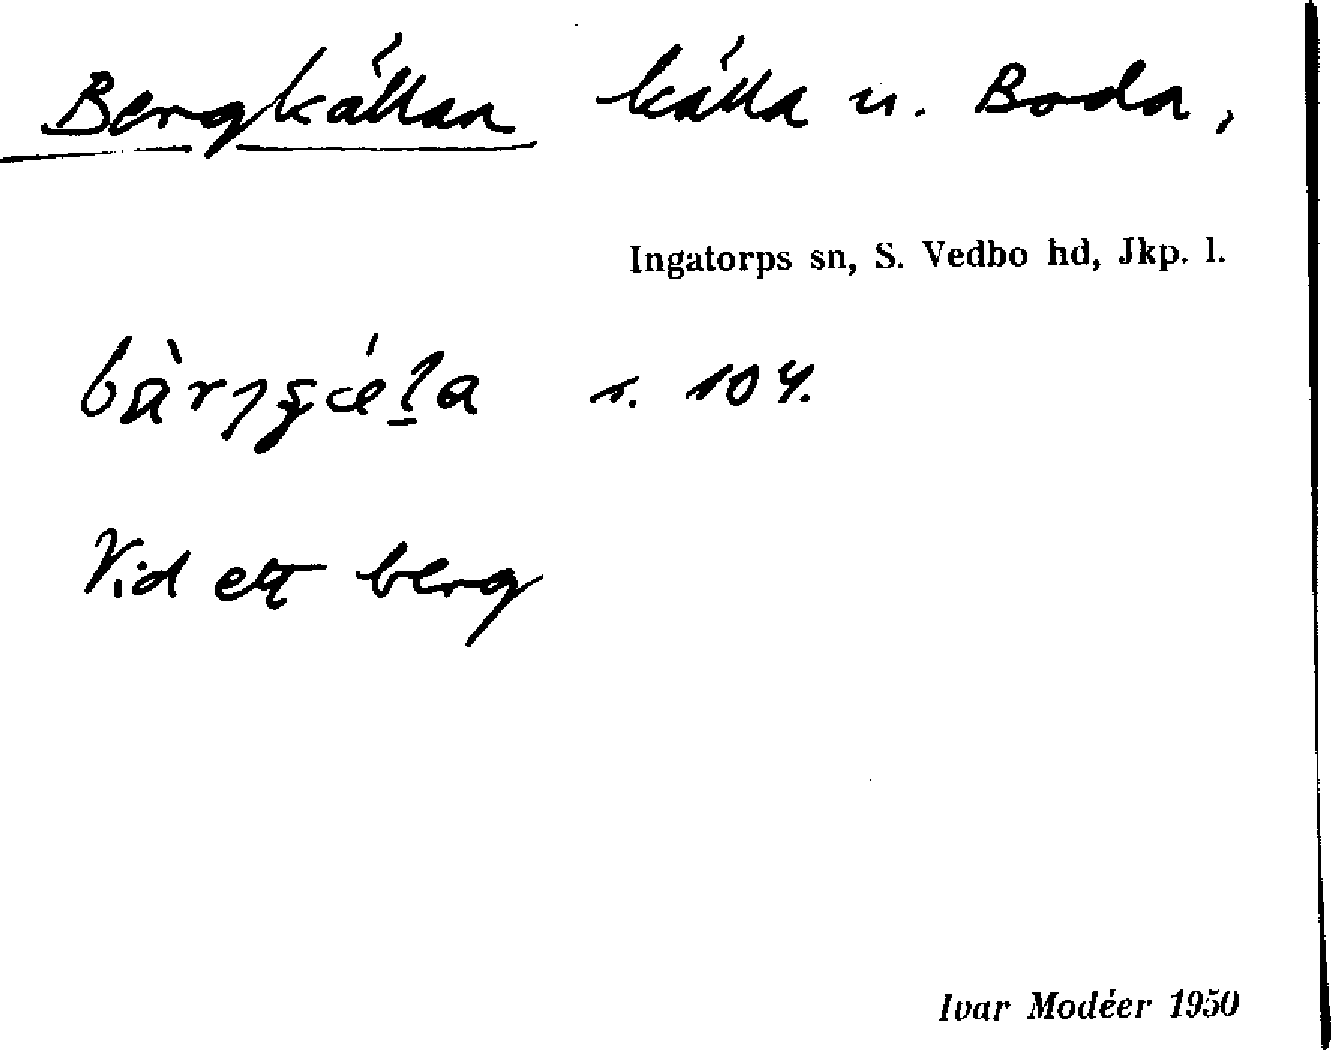 Bergkällan källa u. Boda,
Ingatorps sn, S. Vedbo hd, Jkp. l.
s. 104.
Vid ett berg
Ivar Modéer 1950